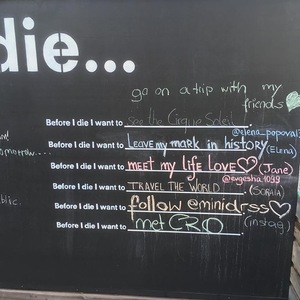 die...
go on a trip with my
friends
Before I die I want to see the Cirque Soleil.
@elena_popova
Before I die I want to Leave my mark in history (Elena)
Before I die I want to meet my life Love (Jane)
@evgeshia1099
Before I die I want to TRAVEL THE WORLD. (SORAIA)
Before I die I want to follow @minidrss
Before I die I want to met CRO (instag)